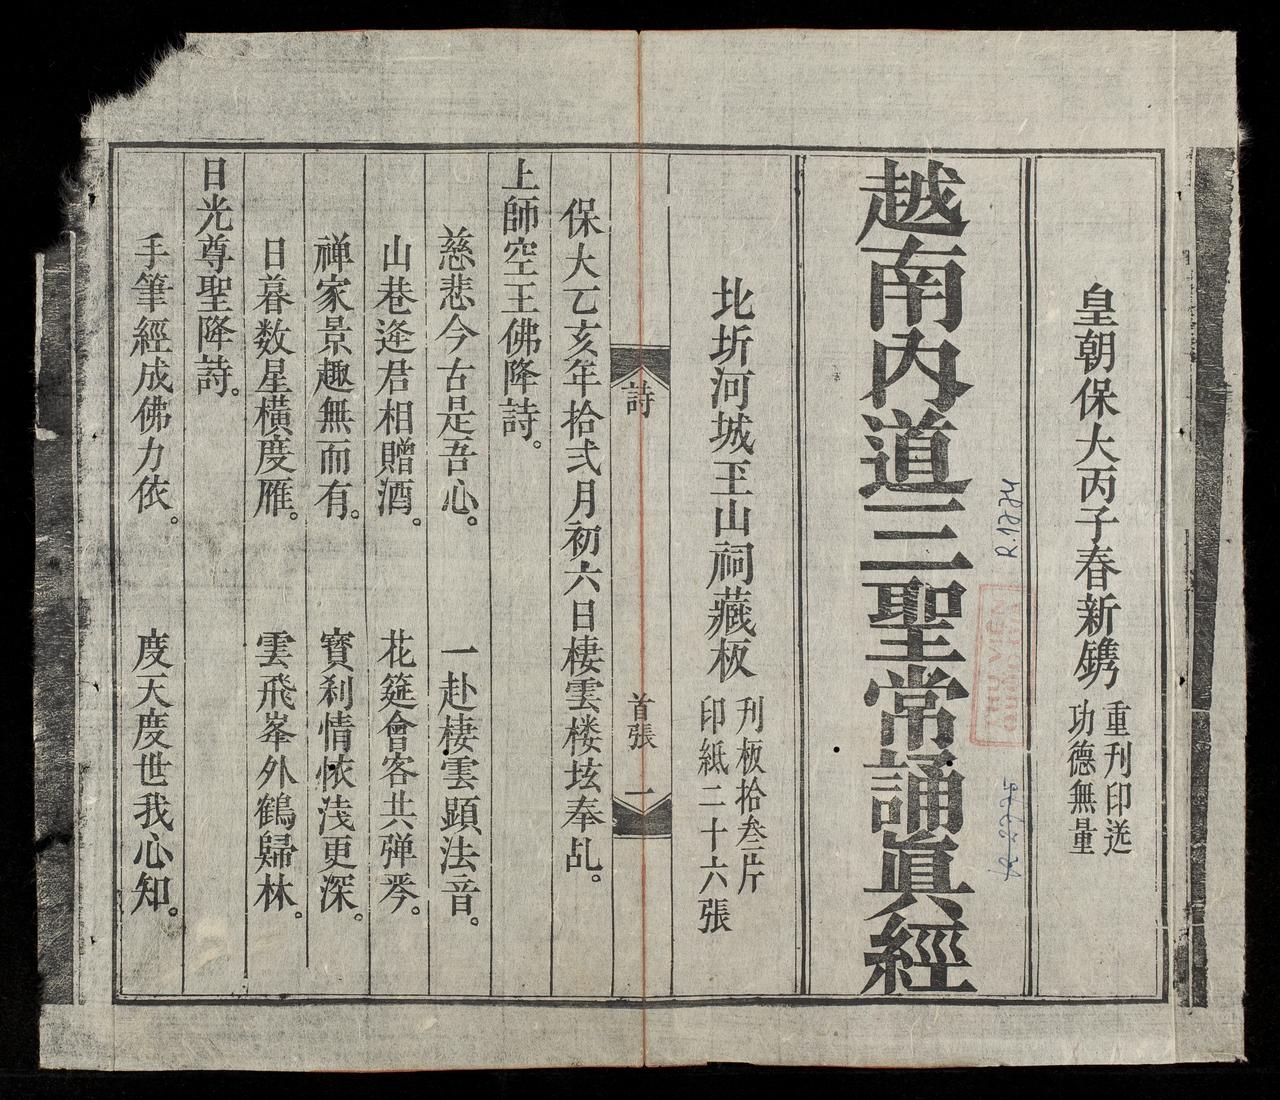 皇朝保大丙子春新鐫
重刊印送
功德無量
越南內道三聖常誦眞經
北圻河城玊山祠藏板
刊板拾叁片
印紙二十六張
詩
首張
一
保大乙亥年拾弍月初六日棲雲楼垓奉乩。
上師空王佛降詩。
慈悲今古是吾心。 一赴棲雲顕法音。
山巷逄君相贈酒。 花筵會客共弾琴。
禅家景趣無而有。 寶刹情懷浅更深。
日暮数星橫度雁。 雲飛峯外鶴歸林。
日光尊聖降詩。
手筆經成佛力依。 度天度世我心知。
R.1774
THƯ VIỆN